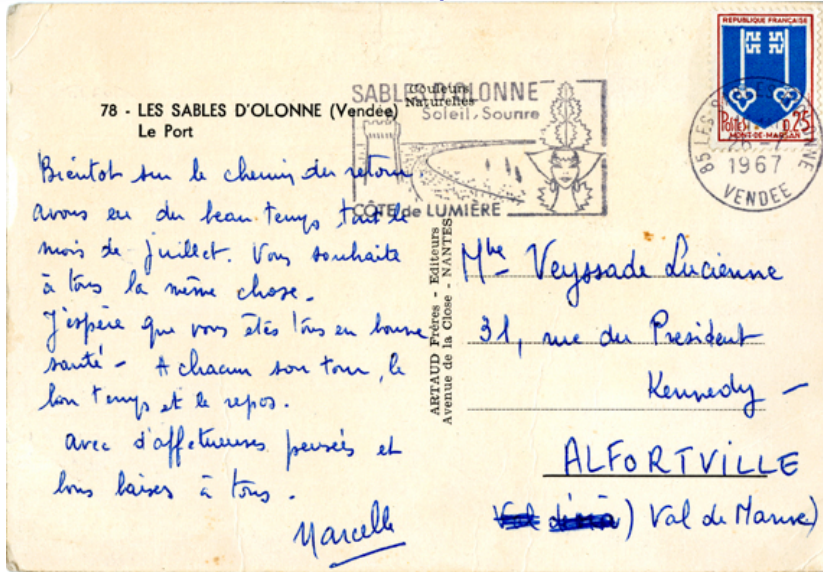 78 - LES SABLES D'OLONNE (Vendée)
Le Port
Couleurs
Naturelles
SABLES D'OLONNE
Soleil, Sourire
CÔTE de LUMIÈRE
REPUBLIQUE FRANÇAISE
POSTES 0,25
MONT-DE-MARSAN
85 LES SABLES D'OLONNE
1967
VENDEE
Bientot sur le chemin du retour
avons eu du beau temps tout le
mois de juillet. Vous souhaite
à tous la même chose.
J'espère que vous êtes tous en bonne
santé - A chacun son tour, le
bon temps et le repos.
avec d'affetueuses pensées et
bons baises à tous.
Marcelle
ARTAUD Frères - Editeurs
Avenue de la Close - NANTES
Mme Veyssade Lucienne
31, rue du President
Kennedy -
ALFORTVILLE
) Val de Marne)